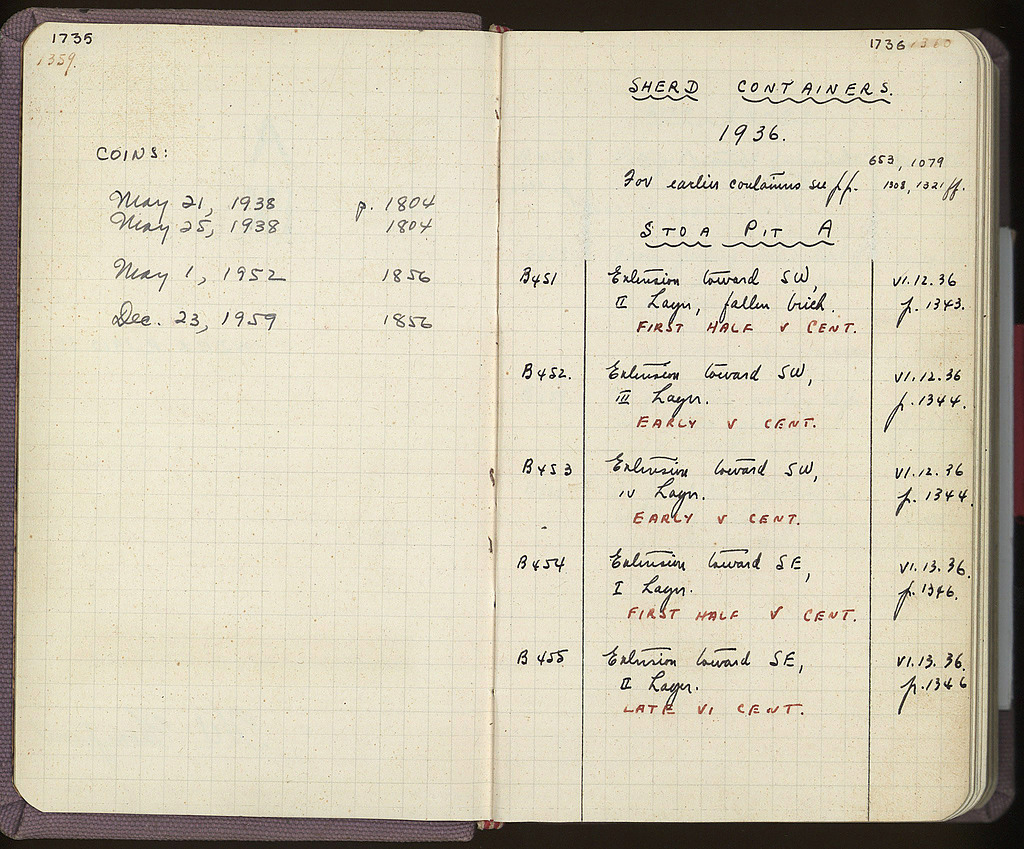 1735
1359.
COINS:
May 21, 1938 p. 1804
May 25, 1938 1804
May 1, 1952 1856
Dec. 23, 1959 1856
1736 1360
SHERD CONTAINERS.
1936.
653, 1079
For earlier containers see pp. 1308, 1321 ff.
STOA PIT A
B451 Extension toward SW, VI.12.36
II Layer, fallen brick. p. 1343.
FIRST HALF V CENT.
B452. Extension toward SW, VI.12.36
III Layer. p. 1344.
EARLY V CENT.
B453 Extension toward SW, VI.12.36
IV Layer. p. 1344
EARLY V CENT.
B454 Extension toward SE, VI.13.36.
I Layer. p. 1346.
FIRST HALF V CENT.
B455 Extension toward SE, VI.13.36.
II Layer. p. 1346
LATE VI CENT.